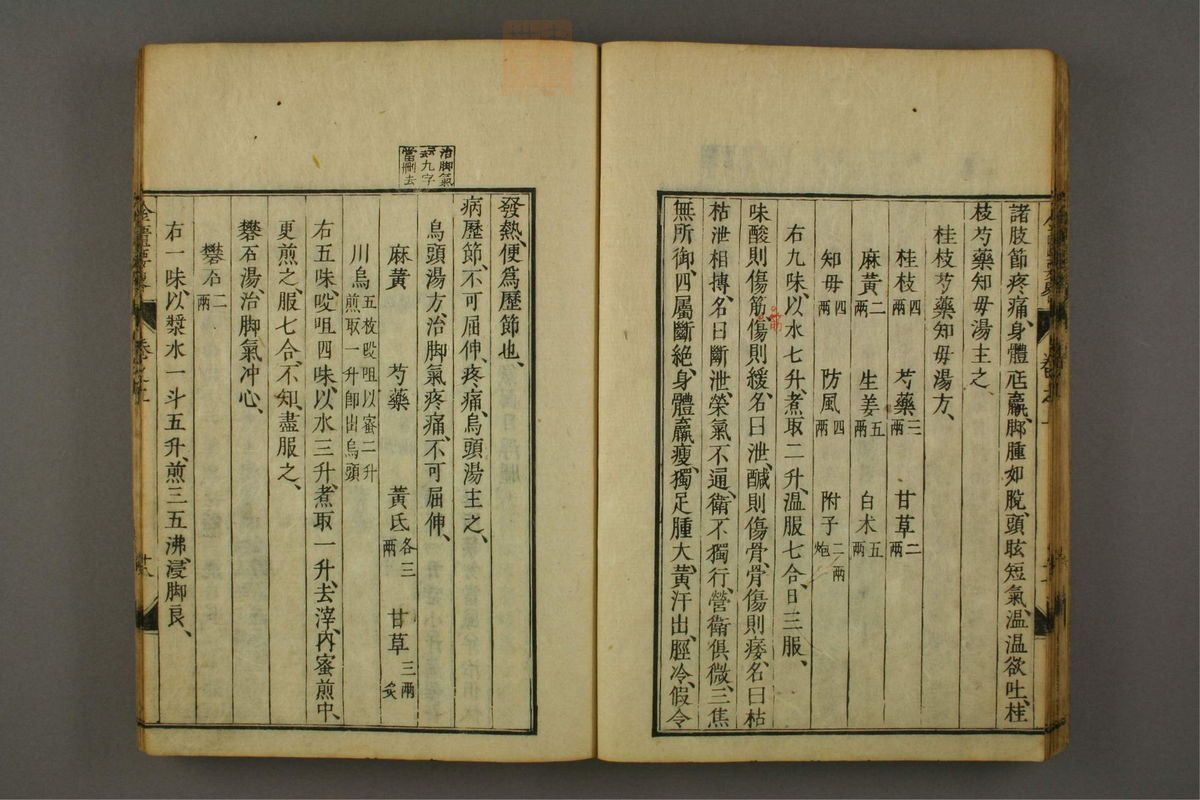 諸肢節疼痛、身體尫羸、脚腫如脫、頭眩短氣、溫溫欲吐、桂
枝芍藥知毋湯主之、
桂枝芍藥知毋湯方、
桂枝四兩 芍藥三兩 甘草二兩
麻黃二兩 生姜五兩 白朮五兩
知毋四兩 防風四兩 附子二兩炮
右九味、以水七升、煮取二升、溫服七合、日三服、
味酸則傷筋、傷則緩、名曰泄、醎則傷骨、骨傷則痿、名曰枯
筋
枯泄相摶、名曰斷泄、榮氣不通、衛不獨行、營衛俱微、三焦
無所御、四屬斷絕、身體羸瘦、獨足腫大、黃汗出、脛冷、假令
發熱、便爲歷節也、
病歷節、不可屈伸、疼痛、烏頭湯主之、
治脚氣
九字
當刪去
烏頭湯方、治脚氣疼痛、不可屈伸、
麻黃 芍藥 黃芪各三兩 甘草三兩炙
川烏五枚㕮咀以蜜二升煎取一升卽出烏頭
右五味、㕮咀四味、以水三升、煮取一升、去滓、內蜜煎中、
更煎之、服七合、不知、盡服之、
礬石湯、治脚氣冲心、
礬石二兩
右一味、以漿水一斗五升、煎三五沸、浸脚良、